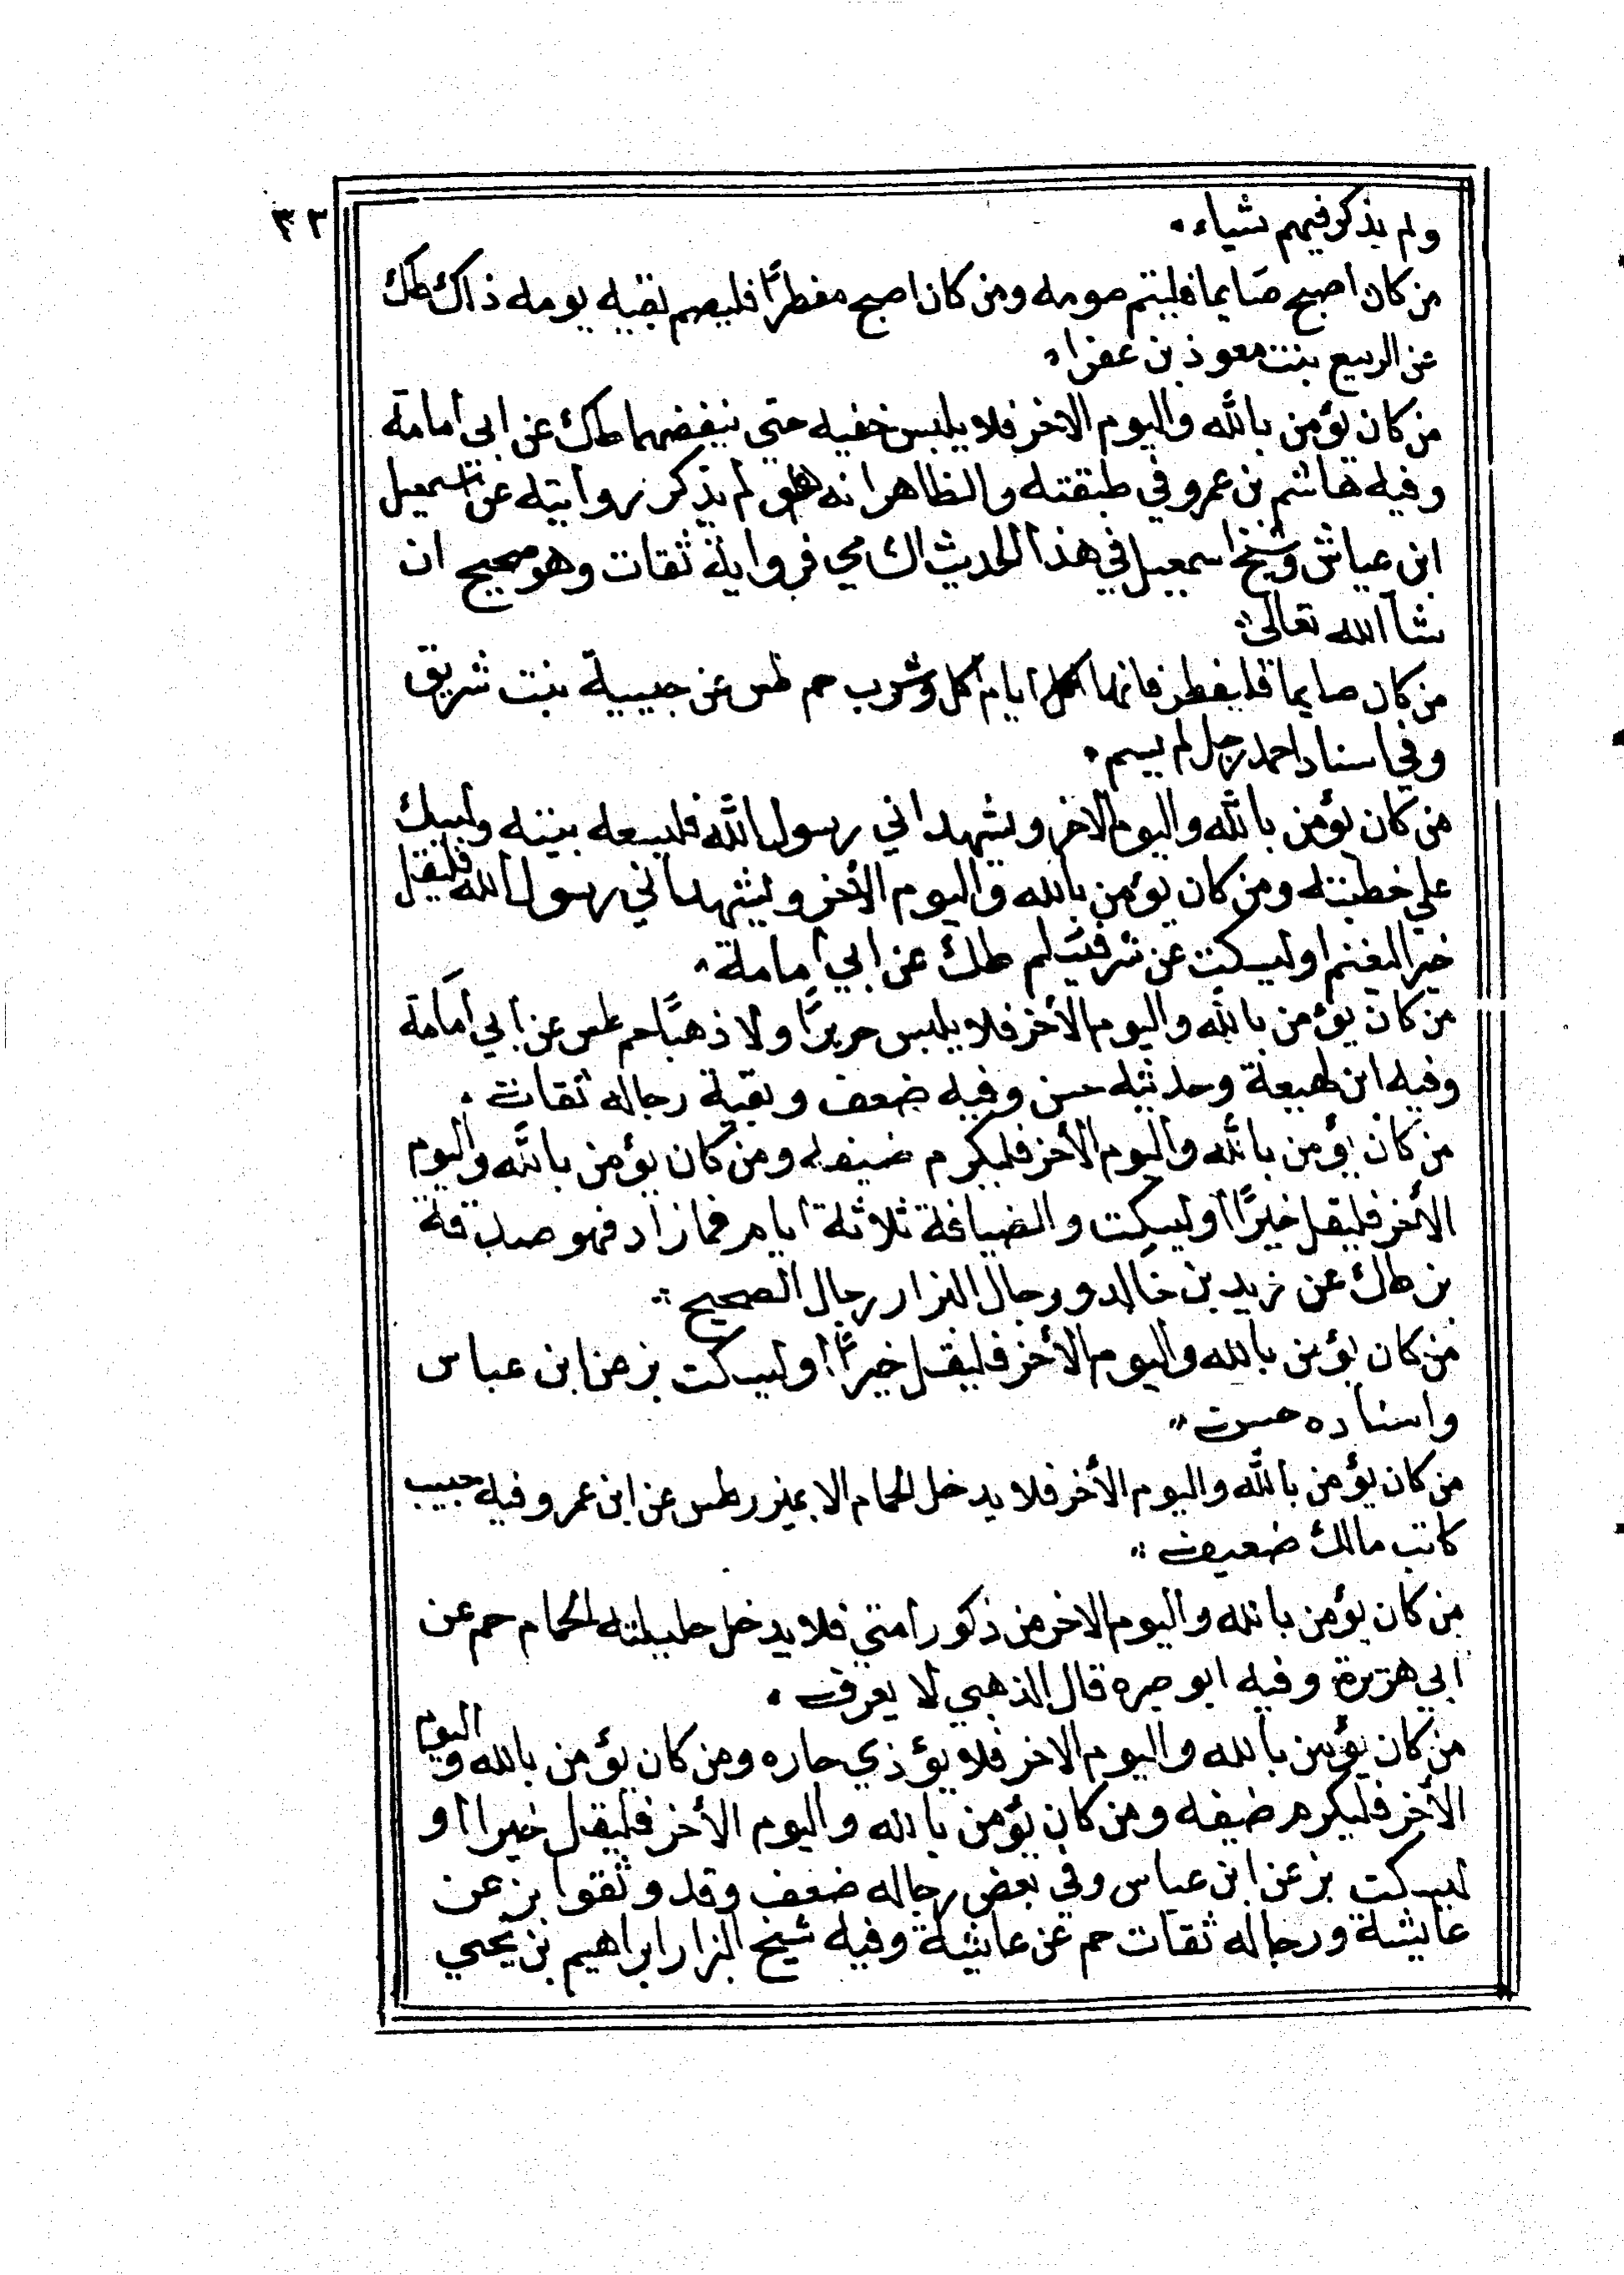 ٣٣
ولم يذكر فيهم شياء
من كان اصبح صَايما فليتم صومه ومن كان اصبح مفطرًا فليصم بقيه يومه ذاك طك
عن الربيع بنت معوذ بن عفراء
من كان يؤمن بالله واليوم الاخر فلا يلبس خفيه حتى ينفضهما طك عن ابي أمامة
وفيه هاشم بن عمرو في طبقته والظاهر انه هو لم يذكر روايته عن اسمعيل
ابن عياش وشيخ اسمعيل في هذا الحديث الشامي فرواية ثقات وهو صحيح ان
شاآ الله تعالى
من كان صايما فليفطر فانها ايام اكل وشرب حم طس عن حبيبة بنت شريق
وفي اسناد احمد رجل لم يسم
من كان يؤمن بالله واليوم الاخر ويشهد اني رسول الله فليسعه بيته وليبك
علي خطيته ومن كان يؤمن بالله واليوم الأخر وليشهد اني رسول الله فليقل
خير اليغنم او ليسكت عن شر فيسلم طك عن ابي أمامة
من كان يؤمن بالله واليوم الأخر فلا يلبس حريرًا ولا ذهبًا حم طس عن ابي أمَامة
وفيه ابن لهيعة وحديثه حسن وفيه ضعف وبقية رجاله ثقات
من كان يؤمن بالله واليوم الأخر فليكرم ضيفه ومن كان يؤمن بالله واليوم
الأخر فليقل خيرًا أو ليسكت والضيافة ثلاثة ايام فما زاد فهو صدقة
بز طك عن زيد بن خالد ورجال البزار رجال الصحيح
من كان يؤمن بالله واليوم الأخر فليقل خيرًا أو ليسكت بز عن ابن عباس
واسناده حسن
من كان يؤمن بالله واليوم الأخر فلا يدخل الحمام الا بميزر طس عن ابن عمر وفيه حبيب
كاتب مالك ضعيف
من كان يؤمن بالله واليوم الاخر من ذكور أمتي فلا يدخل حليلته الحمام حم عن
ابي هريرة وفيه ابو خيره قال الذهبي لا يعرف
من كان يؤمن بالله واليوم الاخر فلا يؤذي جاره ومن كان يؤمن بالله واليوم
الأخر فليكرم ضيفه ومن كان يؤمن بالله واليوم الأخر فليقل خيرا أو
ليسكت بز عن ابن عباس وفي بعض رجاله ضعف وقد وثقوا بز عن
عايشة ورجاله ثقات حم عن عايشة وفيه شيخ البزار ابراهيم بن يحيي